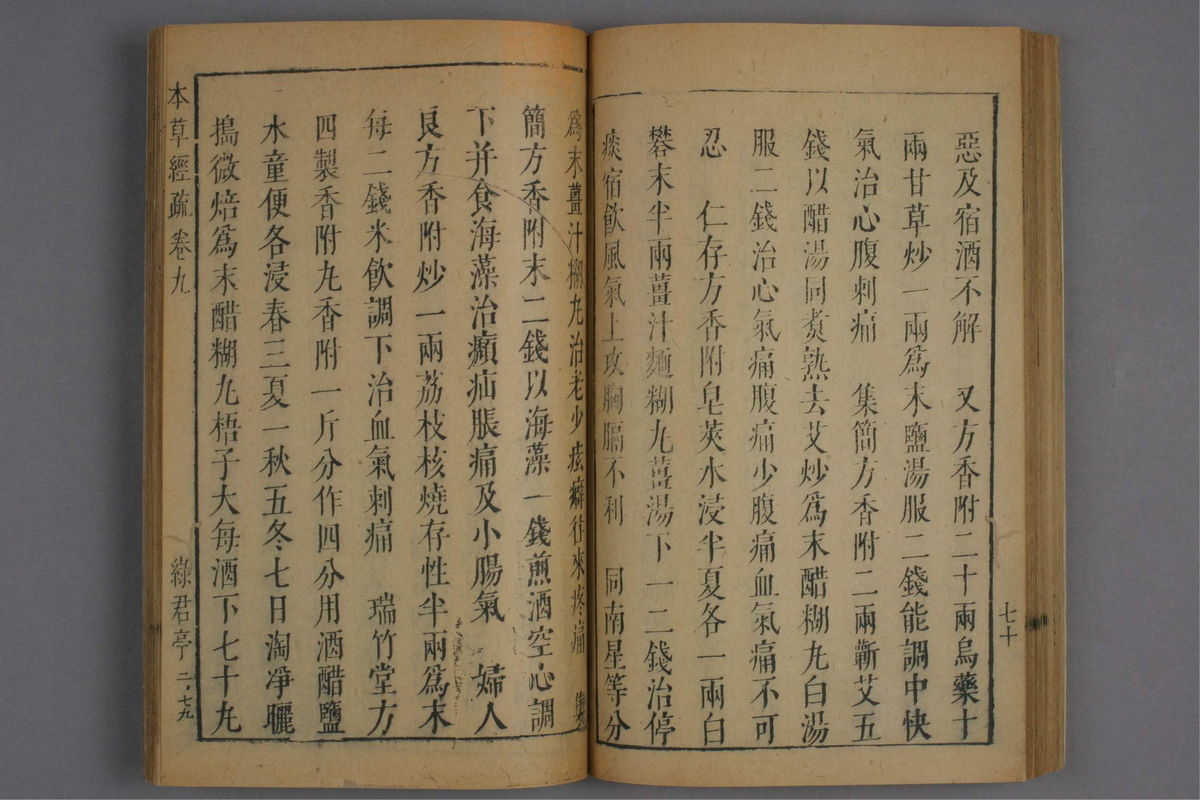 七十
惡及宿酒不解　又方香附二十兩烏藥十
兩甘草炒一兩爲末鹽湯服二錢能調中快
氣治心腹刺痛　集簡方香附二兩蘄艾五
錢以醋湯同煑熟去艾炒爲末醋糊丸白湯
服二錢治心氣痛腹痛少腹痛血氣痛不可
忍　仁存方香附皂莢水浸半夏各一兩白
礬末半兩薑汁麵糊丸薑湯下一二錢治停
痰宿飲風氣上攻胸膈不利　同南星等分
爲末薑汁糊丸治老少痃癖往來疼痛　集
簡方香附末二錢以海藻一錢煎酒空心調
下并食海藻治㿗疝脹痛及小腸氣　婦人
良方香附炒一兩荔枝核燒存性半兩爲末
每二錢米飲調下治血氣刺痛　瑞竹堂方
四製香附丸香附一斤分作四分用酒醋鹽
水童便各浸春三夏一秋五冬七日淘凈曬
搗微焙爲末醋糊丸梧子大每酒下七十丸
本草經疏　卷九　綠君亭　二、七九